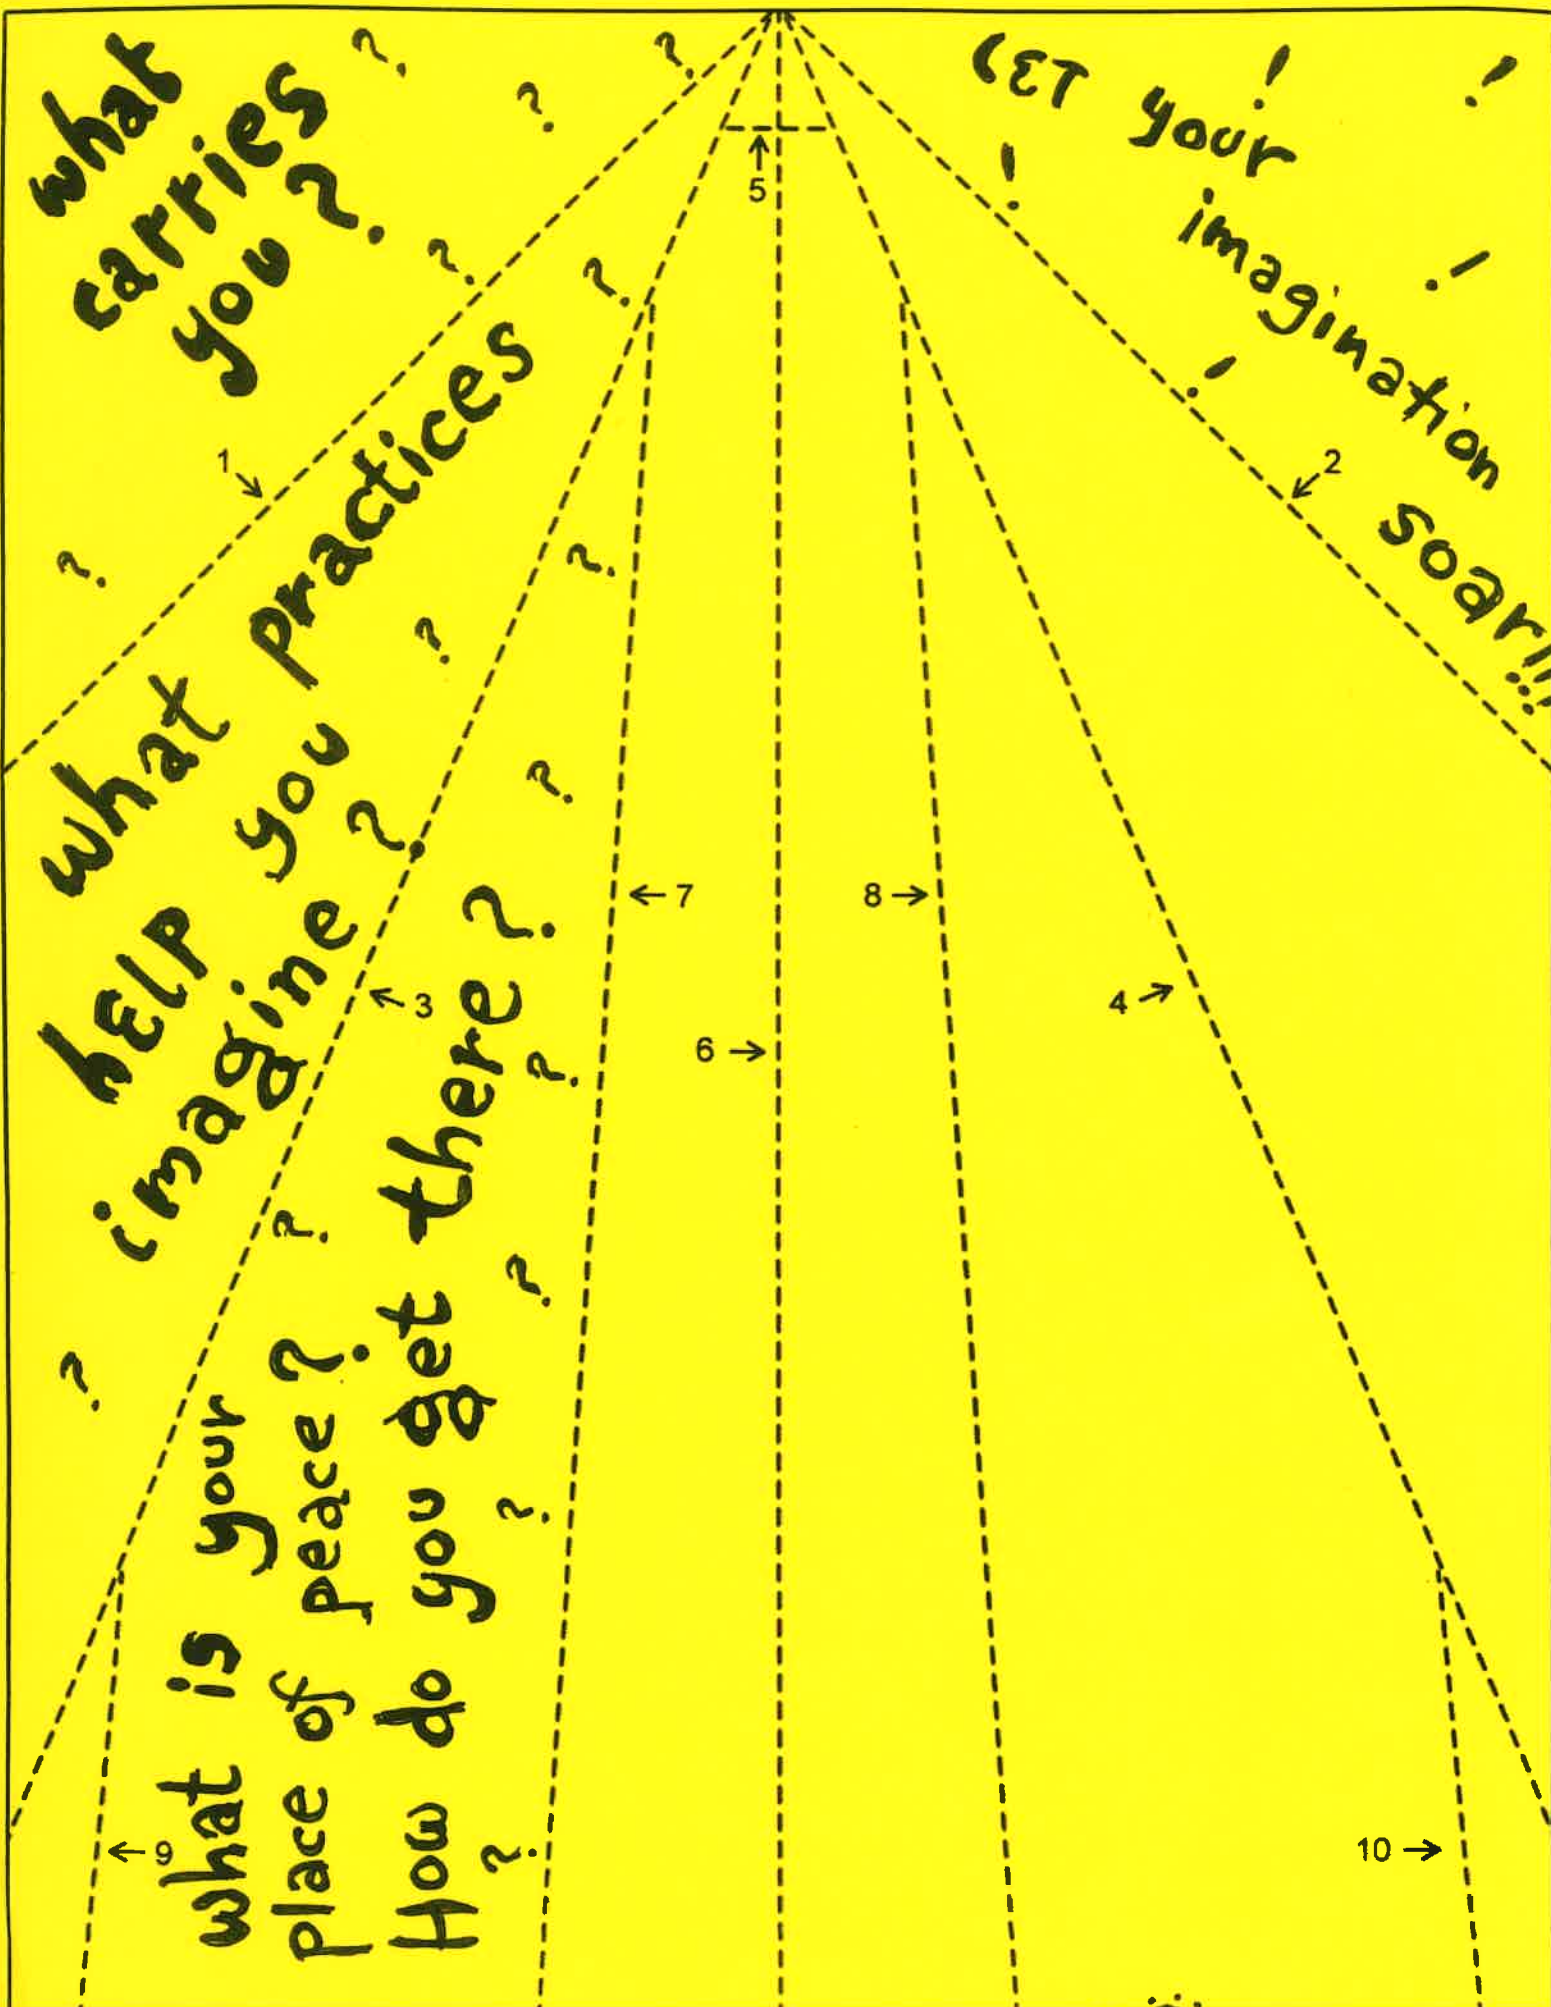 what
carries
you?
LET your
imagination
soar!!!
5
1
2
what practices
help you
imagine?
7
8
3
4
6
what is your
place of peace?
How do you get there?
9
10